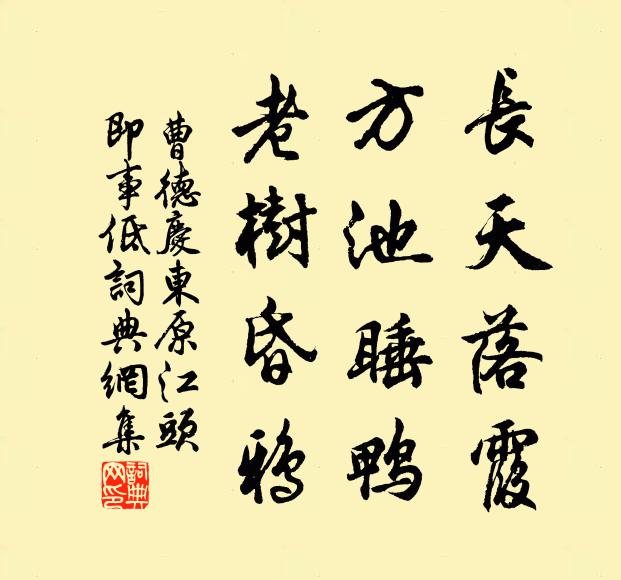 長天落霞
方池睡鴨
老樹昏鴉
曹德慶東原江頭
即事低詞典網集
詞典
网印